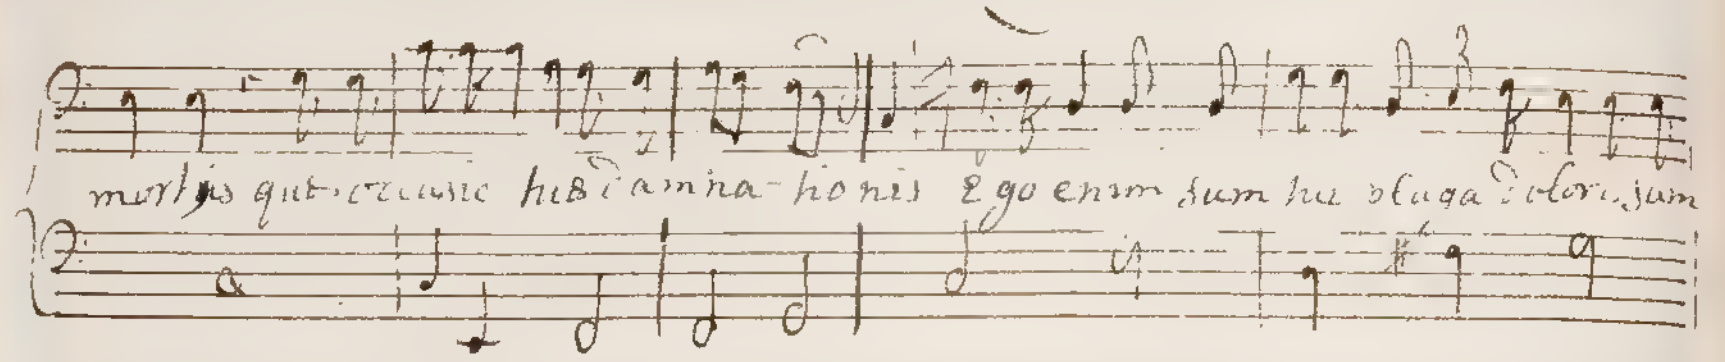 mortis tuæ occasio tuæ damna-tionis Ego enim sum tui plaga doloris, sum